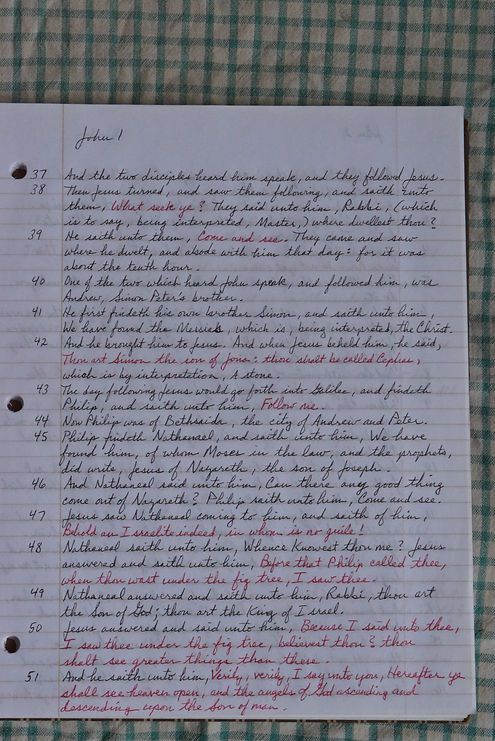 John 1
37 And the two disciples heard him speak, and they followed Jesus.
38 Then Jesus turned, and saw them following, and saith unto
them, What seek ye? They said unto him, Rabbi, (which
is to say, being interpreted, Master,) where dwellest thou?
39 He saith unto them, Come and see. They came and saw
where he dwelt, and abode with him that day: for it was
about the tenth hour.
40 One of the two which heard John speak, and followed him, was
Andrew, Simon Peter's brother.
41 He first findeth his own brother Simon, and saith unto him,
We have found the Messiah, which is, being interpreted, the Christ.
42 And he brought him to Jesus. And when Jesus beheld him, he said,
Thou art Simon the son of Jona: thou shalt be called Cephas,
which is by interpretation, A stone.
43 The day following Jesus would go forth into Galilee, and findeth
Philip, and saith unto him, Follow me.
44 Now Philip was of Bethsaida, the city of Andrew and Peter.
45 Philip findeth Nathanael, and saith unto him, We have
found him, of whom Moses in the law, and the prophets,
did write, Jesus of Nazareth, the son of Joseph.
46 And Nathanael said unto him, Can there any good thing
come out of Nazareth? Philip saith unto him, Come and see.
47 Jesus saw Nathanael coming to him, and saith of him,
Behold an Israelite indeed, in whom is no guile!
48 Nathanael saith unto him, Whence Knowest thou me? Jesus
answered and saith unto him, Before that Philip called thee,
when thou wast under the fig tree, I saw thee.
49 Nathanael answered and saith unto him, Rabbi, thou art
the Son of God; thou art the King of Israel.
50 Jesus answered and said unto him, Because I said unto thee,
I saw thee under the fig tree, believest thou? thou
shalt see greater things than these.
51 And he saith unto him, Verily, verily, I say unto you, Hereafter ye
shall see heaven open, and the angels of God ascending and
descending upon the Son of man.